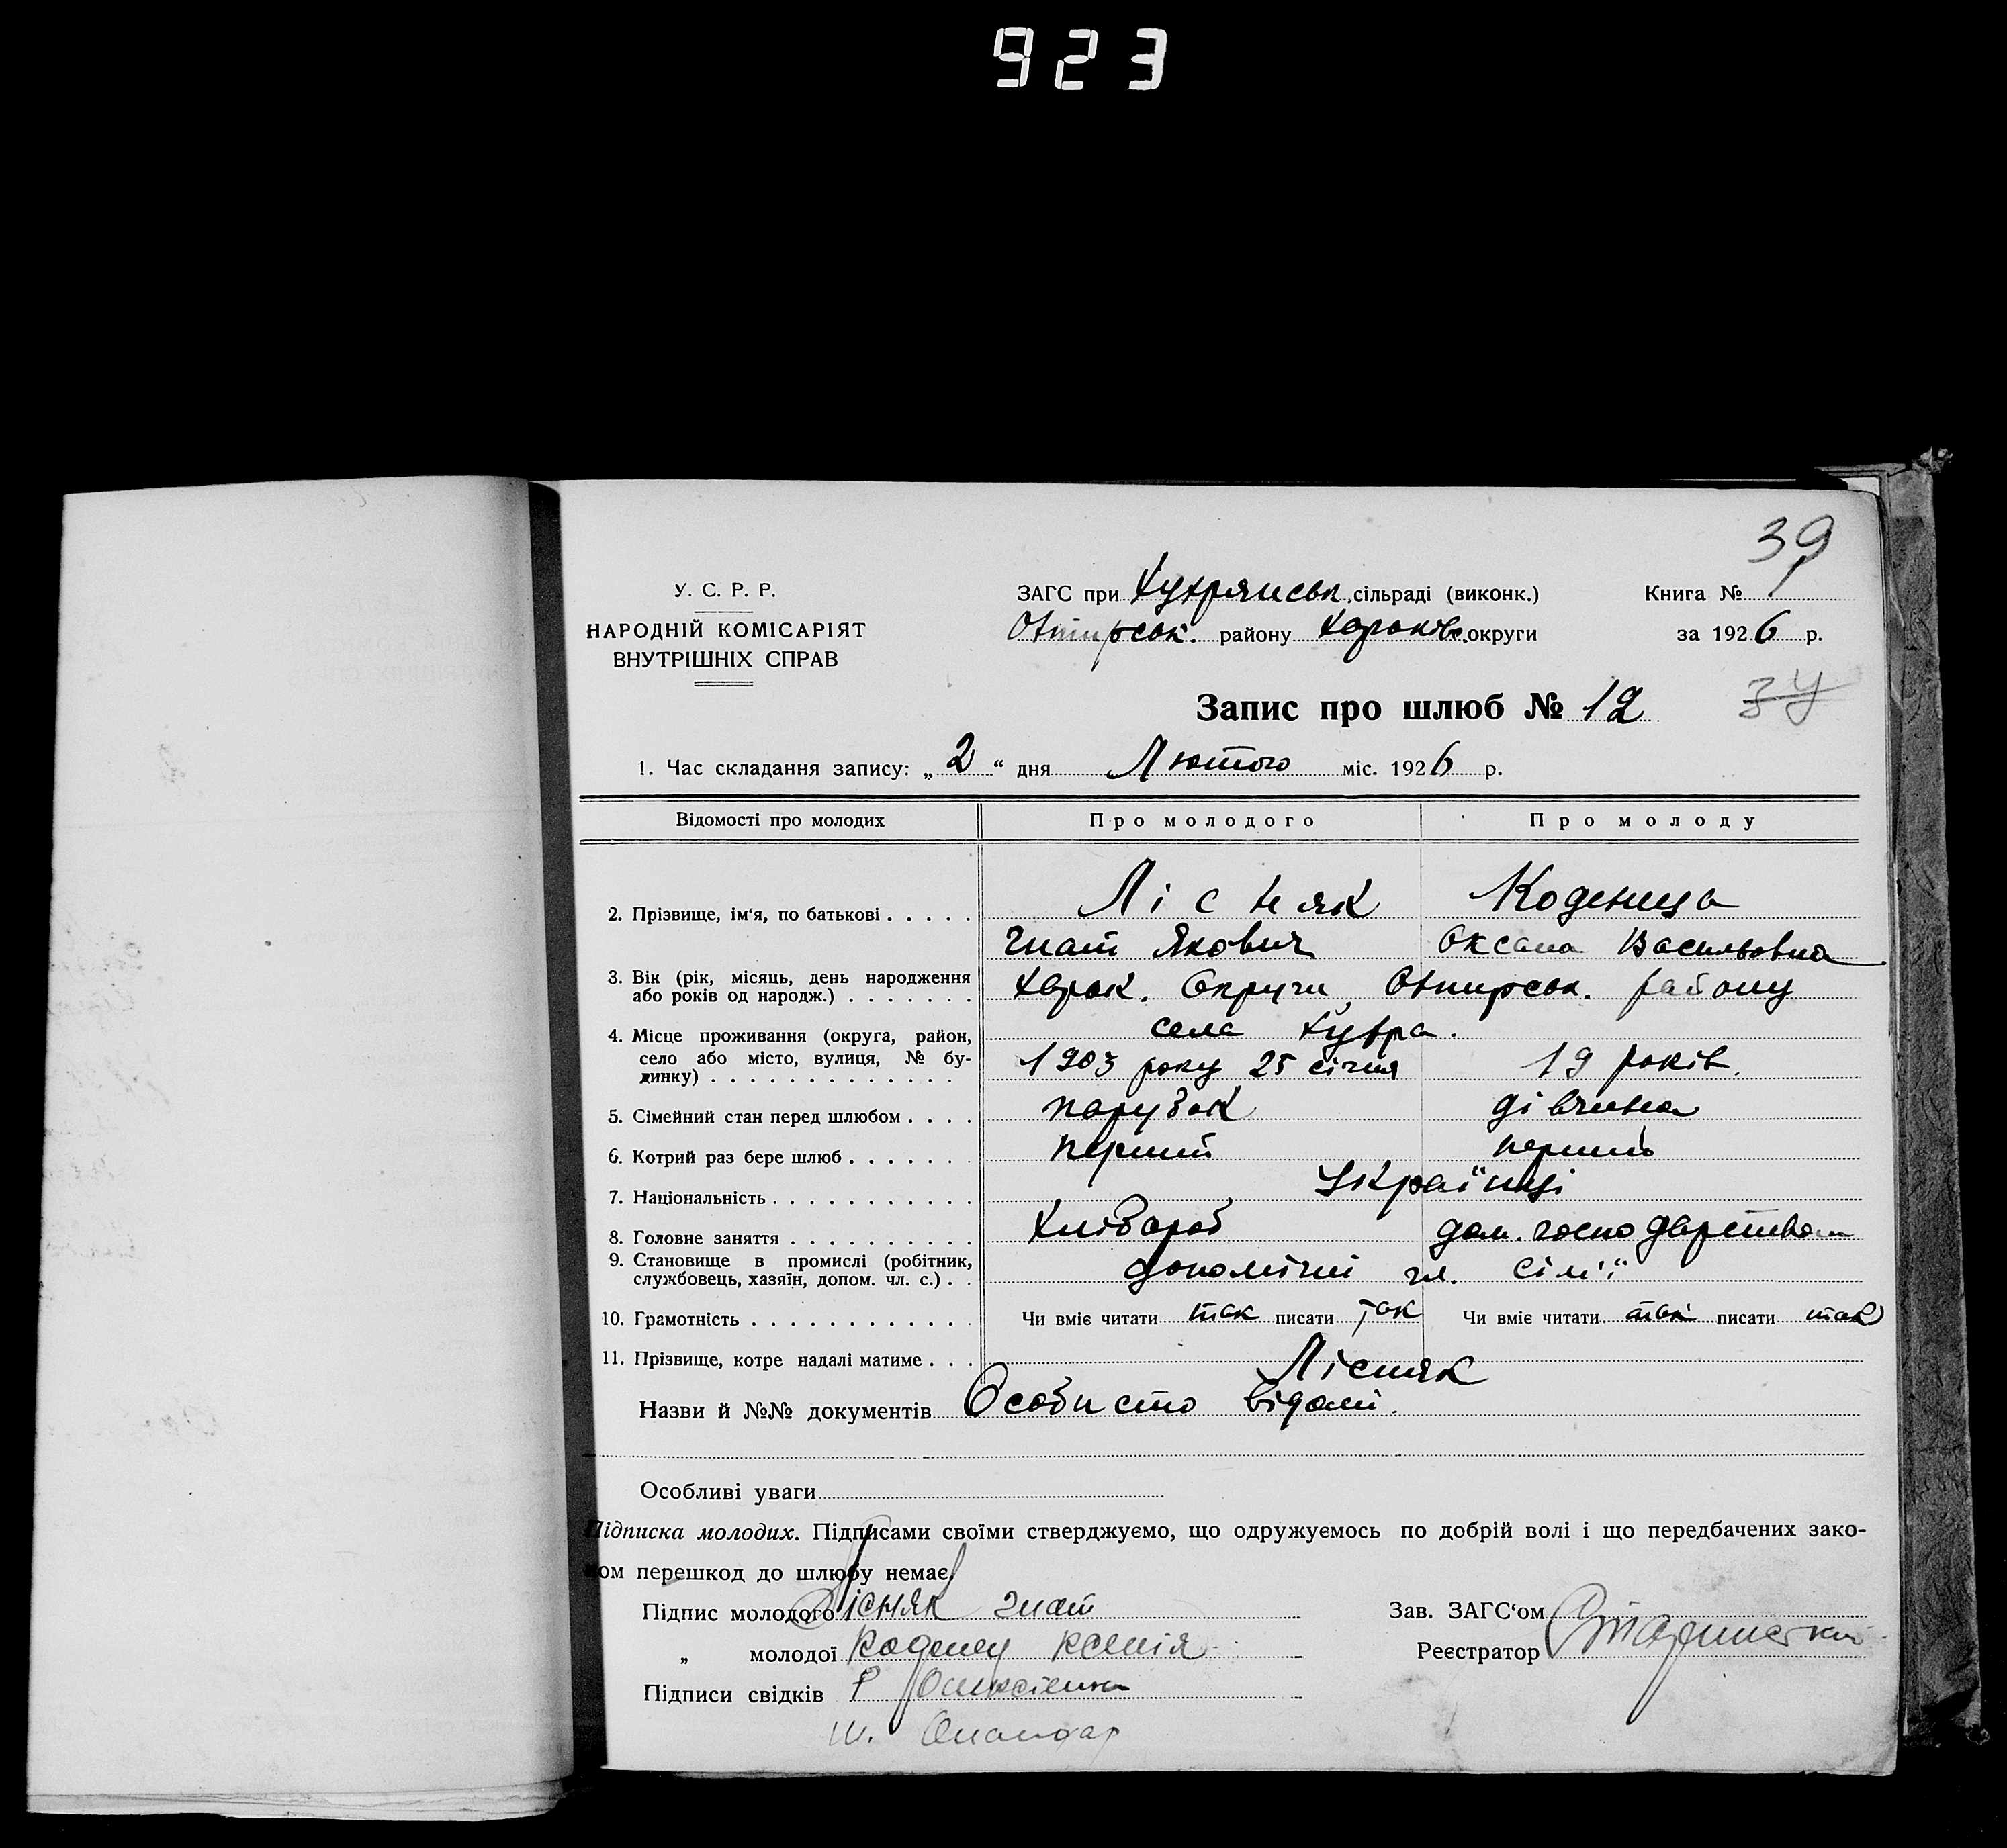 923
39
У. С. Р. Р.
НАРОДНІЙ КОМІСАРІЯТ
ВНУТРІШНІХ СПРАВ
ЗАГС при Хухрянськ. сільраді (виконк.)
Охтирськ. району Харків. округи
Книга №
за 1926 р.
Запис про шлюб № 12
34
1. Час складання запису: „2“ дня Лютого міс. 1926 р.
Відомості про молодих Про молодого Про молоду
2. Прізвище, ім‘я, по батькові . . . . . Лісняк Коденец
Гнат Якович Оксана Васильовна
3. Вік (рік, місяць, день народження
або років од народж.) . . . . . . . Харк. Округи, Охтирськ. району
4. Місце проживання (округа, район, села Хухра.
село або місто, вулиця, № бу-
динку) . . . . . . . . . . . . . 1903 року 25 січня 19 років.
5. Сімейний стан перед шлюбом . . . . парубок дівчина
6. Котрий раз бере шлюб . . . . . . . перший перший
7. Національність . . . . . . . . . . . Українці
8. Головне заняття . . . . . . . . . . Хлібороб дом. господарством
9. Становище в промислі (робітник,
службовець, хазяїн, допом. чл. с.) . . допомічні чл. сім'ї
10. Грамотність . . . . . . . . . . . . Чи вміє читати так писати так Чи вміє читати так писати так
11. Прізвище, котре надалі матиме . . . Лісняк
Назви й №№ документів Особисто відомі.
Особливі уваги
Підписка молодих. Підписами своїми стверджуємо, що одружуємось по добрій волі і що передбачених зако-
ном перешкод до шлюбу немає.
Підпис молодого Лісняк Гнат
„ молодої Ксенія
Підписи свідків
Зав. ЗАГС‘ом
Реєстратор